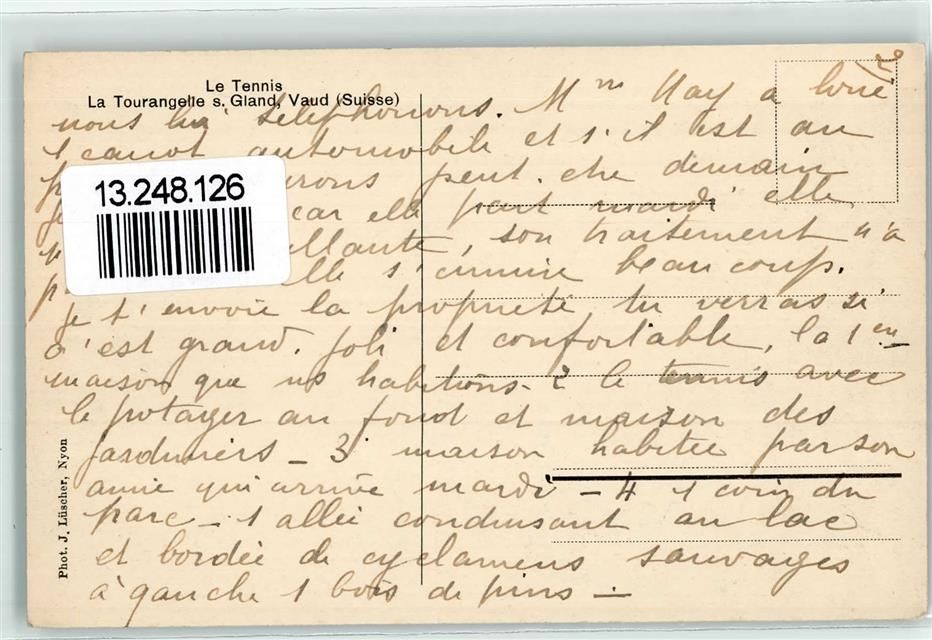 Le Tennis
La Tourangelle s. Gland, Vaud (Suisse)
2
nous lui téléphonons. Mme May a loué
1 canot automobile et s'il est au
p rons peut-être demain
je car elle part mardi elle
p llante, son traitement n'a
p elle s'ennuie beaucoup.
je t'envoie la propriété, tu verras si
c'est grand, joli et confortable, la 1ere
maison que ns habitons - 2 le tennis avec
le potager au fond et maison des
jardiniers - 3 maison habitée par son
amie qui arrive mardi - 4 1 coin du
parc - 1 allée conduisant au lac
et bordée de cyclamens sauvages
à gauche 1 bois de pins -
13.248.126
Phot. J. Lüscher, Nyon